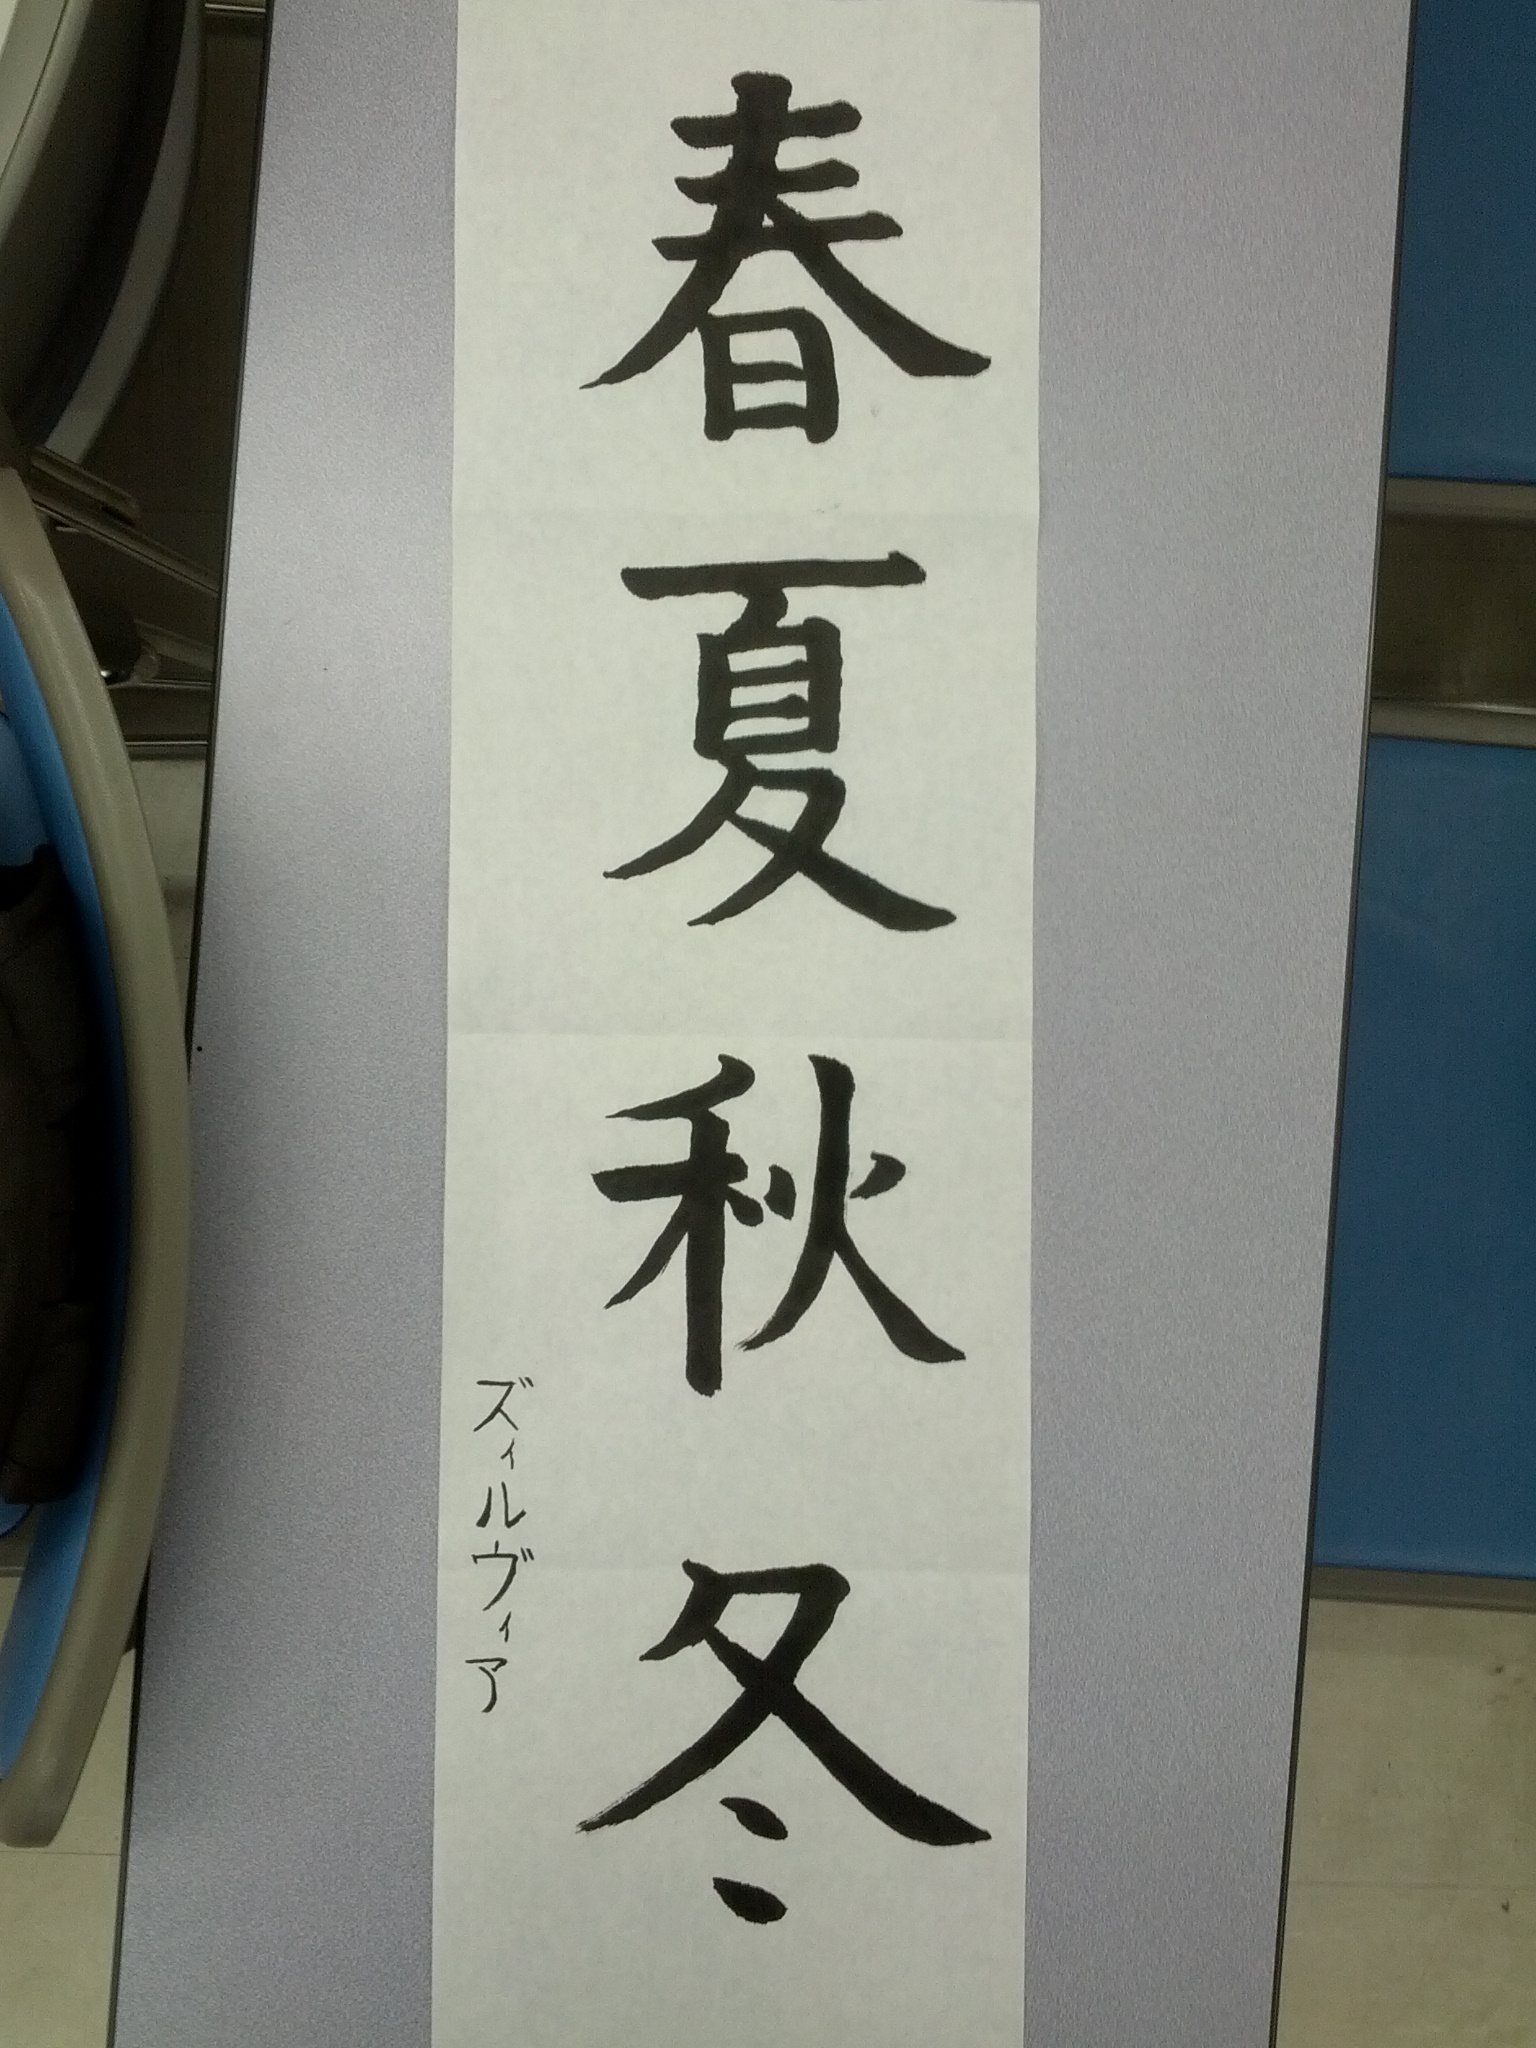 春夏秋冬
ズィルヴィア